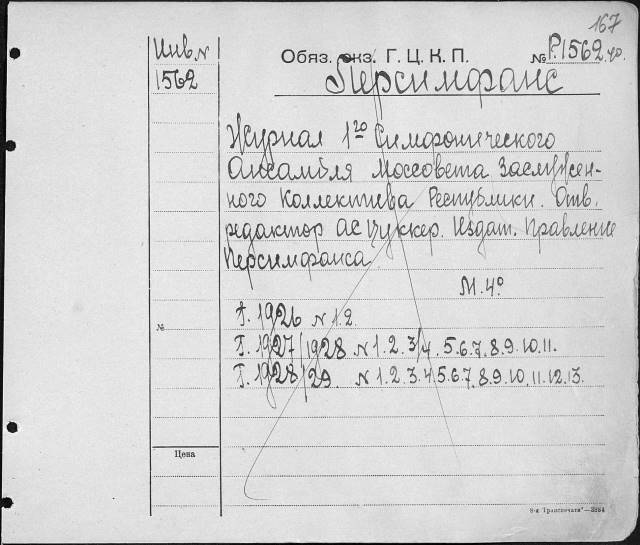 167
Инв. №
1562
Обяз. экз. Г. Ц. К. П.
№ Р.1562.40.
Персимфанс
Журнал 1го Симфонического
Ансамбля Моссовета Заслужен-
ного Коллектива Республики. Отв.
редактор АС Цуккер. Издат. Правление
Персимфанса.
М. 4°
Г. 1926 N 1.2.
№
Г. 1927/1928 N 1.2.3/4. 5.6.7.8.9.10.11.
Г. 1928/29. N 1.2.3.4.5.6.7.8.9.10.11.12.13.
Цена
8-я „Транспечати"—3884